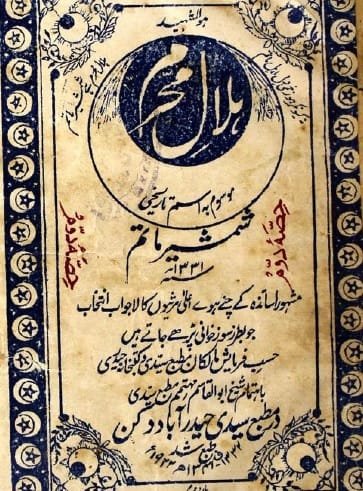 ہو الشہید
ہلال محرم
موسوم بہ اسم تاریخی
شمشیر ماتم
۱۳۳۱
سنہ
حصہ دوم
حصہ دوم
مشہور اساتذہ کے چنے ہوے اعلیٰ مرثیوں کا لاجواب انتخاب
جو بطرز سوز خوانی پڑھے جاتے ہیں
حسب فرمایش مالکان مطبع سیدی و کتبخانہ حیدری
باہتمام شیخ ابوالقاسم مہتمم مطبع سیدی
در مطبع سیدی حیدرآباد دکن
طبع شد